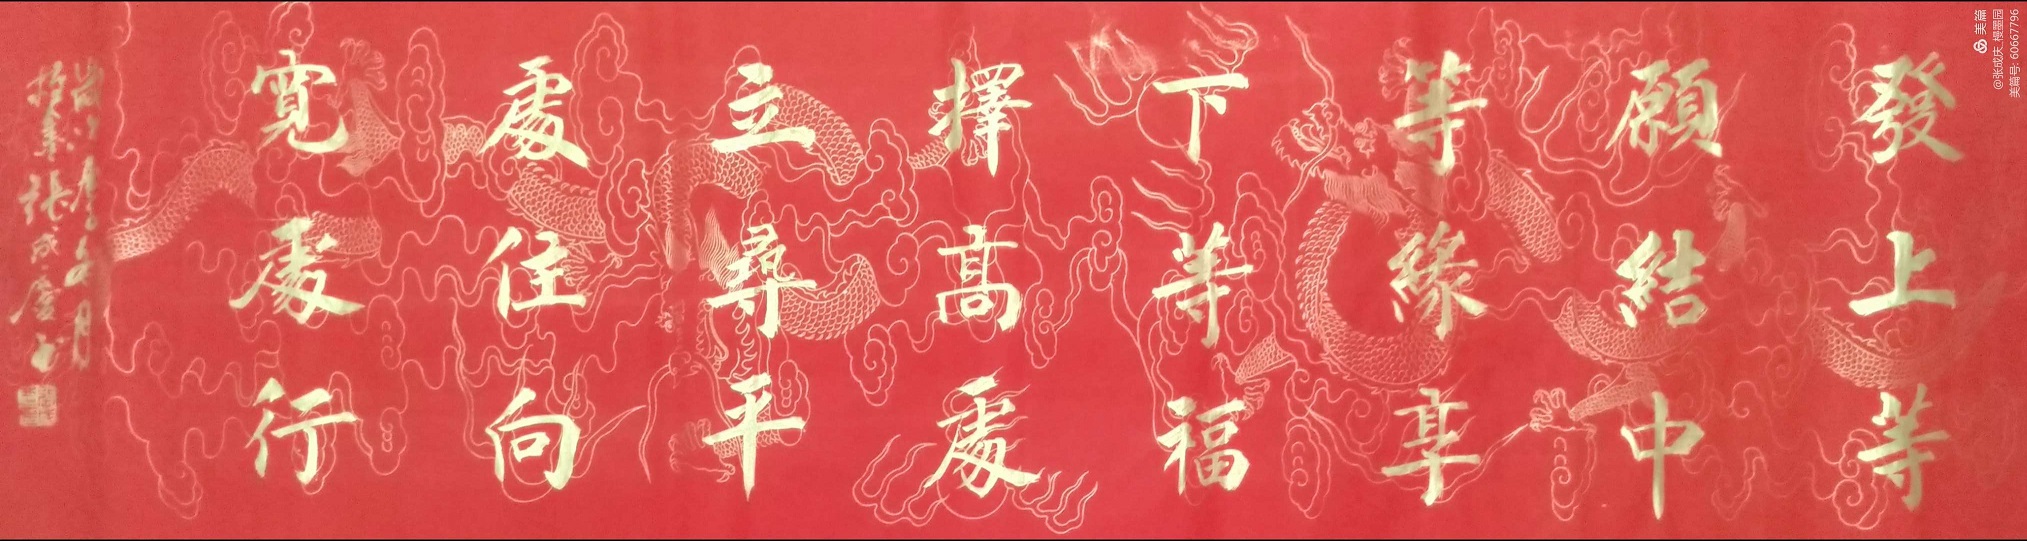 發上等
願結中
等緣享
下等福
擇高處
立尋平
處住向
寬處行
張成慶书
美篇
@张成庆 槾墨园
美篇号: 60667796